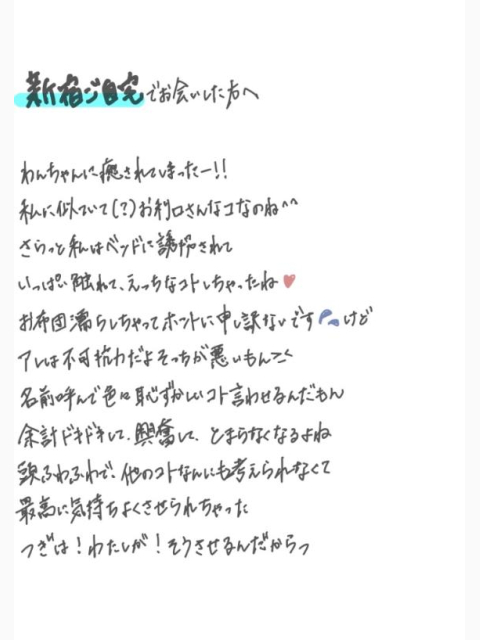 新宿ご自宅でお会いした方へ
わんちゃんに癒されてしまったー!!
私に似ていて(?)お利口さんなコなのね^^
さらっと私はベッドに誘拐されて
いっぱい触れて、えっちなコトしちゃったね
お布団濡らしちゃってホントに申し訳ないですけど
アレは不可抗力だよそっちが悪いもん><
名前呼んで色々恥ずかしいコト言わせるんだもん
余計ドキドキして、興奮して、とまらなくなるよね
頭ふわふわで、他のコトなんにも考えられなくて
最高に気持ちよくさせられちゃった
つぎは!わたしが!そうさせるんだからっ